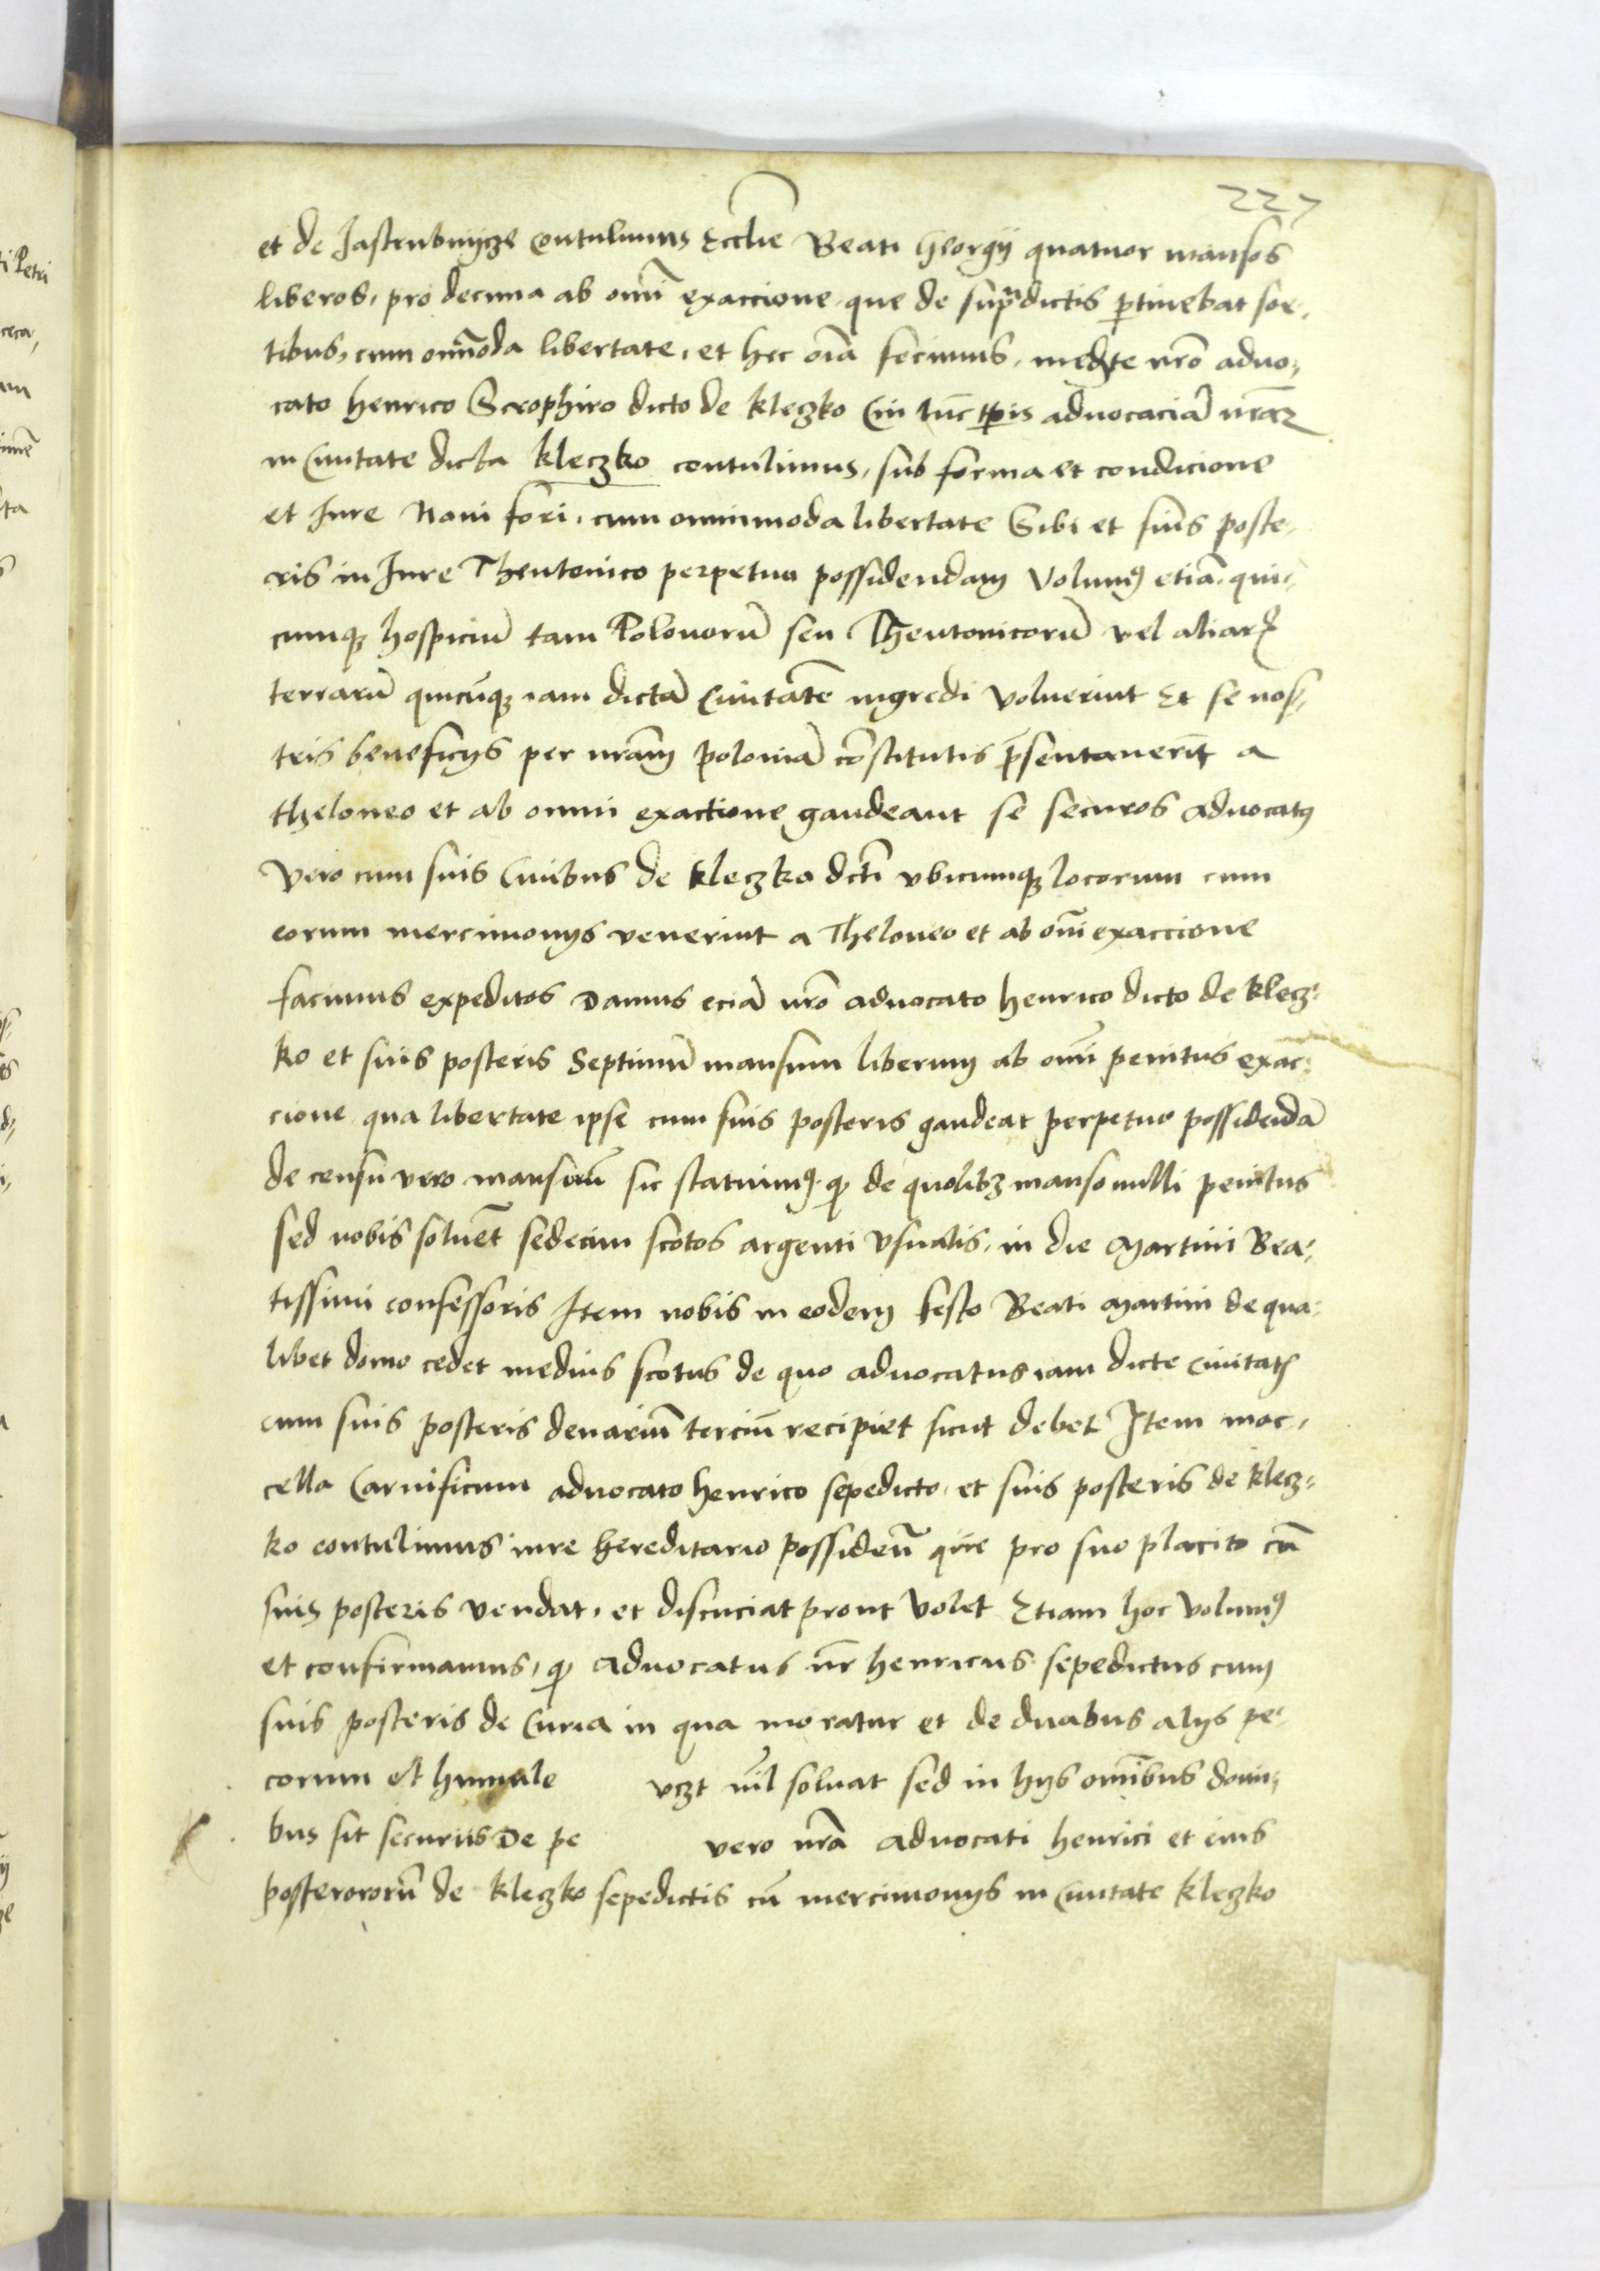 227
et de Jastrubniycze contulimus Ecclie Beati Georgij quatuor mansos
liberos, pro decima ab omi exaccione que de supdictis ptinebat sor,
tibus, cum omoda libertate, et hec oia fecimus, mediate nro advo,
cato henrico Scrophiro dicto de kleczko Cui tuc tpis advocacia nram
in Civitate dicta kleczko contulimus, sub forma et condicione
et Jure Novi fori, cum omnimoda libertate Sibi et suis poste,
ris in Jure Theutonico perpetua possidendam Volum9 etia qui,
cumq hospiciu tam Polonoru seu Theutonicoru vel aliar
terraru quicuq iam dicta Civitate ingredi voluerint Et se nos,
tris beneficijs per nram polonia costitutis psentaverit a
theloneo et ab omni exactione gaudeant se securos Advocat9
vero cum suis Civibus de kleczko dcti vbicumq locorum cum
eorum mercimonijs venerint a Theloneo et ab omi exaccione
facimus expeditos Damus ecia nro advocato henrico dicto de klecz,
ko et suis posteris Septimu mansum liberum ab omi penitus exac,
cione qua libertate ipse cum suis posteris gaudeat perpetuo possidenda
de censu vero mansoru sic statuim9 q de quolibz manso nulli penitus
sed nobis solvet sedecim scotos argenti vsualis, in die Martini Bea,
tissimi confessoris Item nobis in eodem festo Beati Martini de qua,
libet domo cedet medius scotus de quo advocatus iam dicte Civitatis
cum suis posteris denariu terciu recipiet sicut debet Item mac,
cella Carnificum advocato henrico sepedicto, et suis posteris de klecz,
ko contulimus iure hereditario possidenu que pro suo placito cu
suis posteris vendat, et discuciat prout volet Etiam hoc volum9
et confirmamus, q advocatus nr henricus sepedictus cum
suis posteris de Curia in qua moratur et de duabus alijs pe,
corum et humule vczt nil solvat sed in hijs omibus domi,
bus sit securus De pe vero nra advocati henrici et eius
posterororu de kleczko sepedictis cu mercimonijs in Civitate kleczko